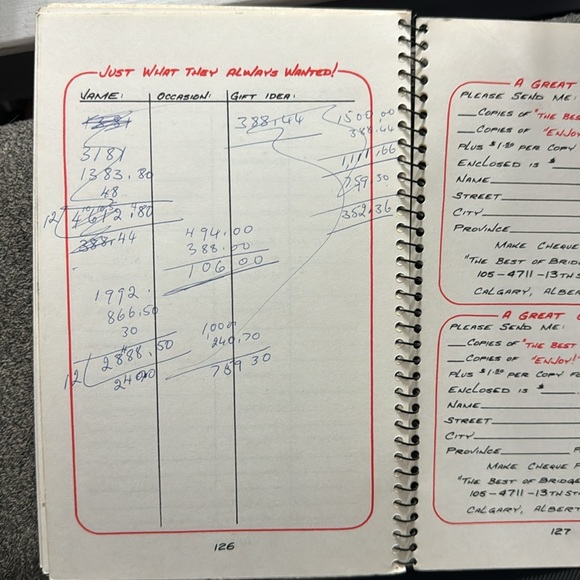 JUST WHAT THEY ALWAYS WANTED!
NAME: OCCASION: GIFT IDEA:
388.44 1500.00
388.44
3181 1,111.66
1383.80 759.30
48 352.36
12 4612.80
388.44
494.00
388.00
106.00
1992.
866.50
30 1000
12 2888.50 240.70
240.70 759 30
126
A GREAT
PLEASE SEND ME:
COPIES OF "THE BES
COPIES OF "ENJOY
PLUS $1.50 PER COPY
ENCLOSED IS $
NAME
STREET
CITY
PROVINCE
MAKE CHEQUE
"THE BEST OF BRID
105-4711-13TH S
CALGARY, ALBER
A GREAT
PLEASE SEND ME:
COPIES OF "THE BEST
COPIES OF "ENJOY!"
PLUS $1.50 PER COPY FO
ENCLOSED IS $
NAME
STREET
CITY
PROVINCE
MAKE CHEQUE P
"THE BEST OF BRIDGE
105-4711-13TH ST
CALGARY, ALBERT
127